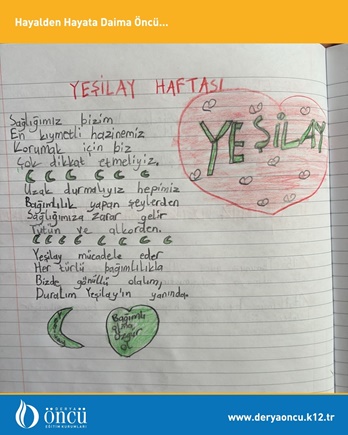 Hayalden Hayata Daima Öncü...
YEŞİLAY HAFTASI
YEŞİLAY
Sağlığımız bizim
En kıymetli hazinemiz
Korumak için biz
Çok dikkat etmeliyiz.
Uzak durmalıyız hepimiz
Bağımlılık yapan şeylerden
Sağlığımıza zarar gelir
Tütün ve alkorden.
Yeşilay mücadele eder
Her türlü bağımlılıkla
Bizde gönüllü olalım,
Duralım Yeşilay'ın yanında.
Bağımlı
olma
Özgür
ol
DERYA
öncü
EĞİTİM KURUMLARI
www.deryaoncu.k12.tr